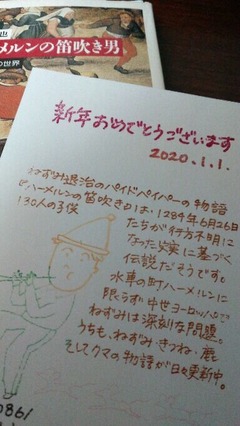 メルンの笛吹き男
の世界
新年おめでとうございます
2020.1.1.
ねずみ退治のパイドパイパーの物語
『ハーメルンの笛吹き』は、1284年6月26日
130人の子供たちが行方不明に
なった史実に基づく
伝説だそうです。
水車の町ハーメルンに
限らず、中世ヨーロッパで
ねずみは深刻な問題。
うちも、ねずみ・きつね・鹿
そしてクマの物語が日々更新中。
086/